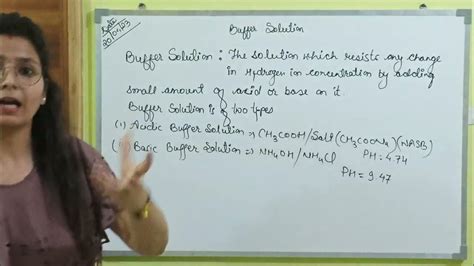 Date
20/04/23
Buffer Solution
Buffer Solution : The solution which resists any change
in Hydrogen ion concentration by adding
small amount of acid or base on it
Buffer Solution is of two types
(i) Acidic Buffer Solution ⇒ CH3COOH/Salt(CH3COONa)(NASB)
PH = 4.74
(ii) Basic Buffer Solution ⇒ NH4OH/NH4Cl
PH = 9.47